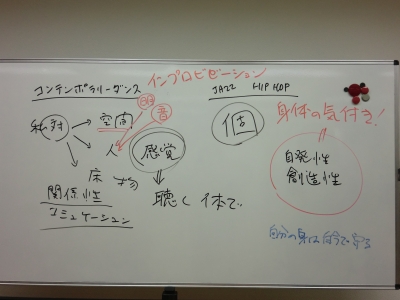 インプロビゼーション
コンテンポラリーダンス
私対
空間
人
床
関係性
コミュニケーション
音
感覚
聴く 体で
JAZZ HIP HOP
個
身体の気付き!
自発性
創造性
自分の身は自分で守る